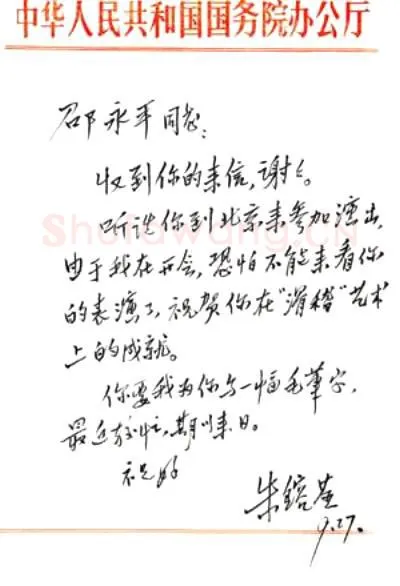 中华人民共和国国务院办公厅
邵永平同志:
收到你的来信,谢々。
听说你到北京来参加演出,
由于我在开会,恐怕不能来看你
的表演了,祝贺你在“滑稽”艺术
上的成就。
你要我为你写一幅毛笔字,
最近较忙,期以来日。
祝好
朱镕基
9.27.
Shufawang.cn